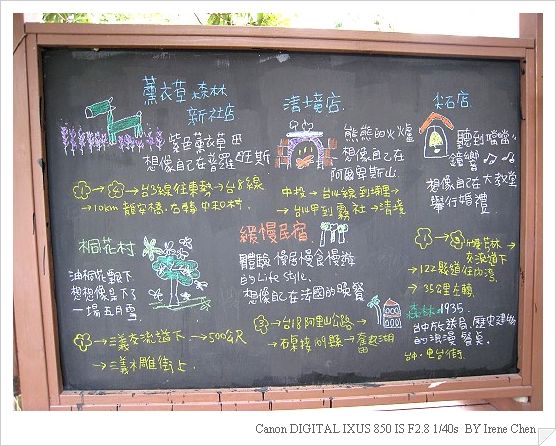 薰衣草森林
新社店
紫色薰衣草田
想像自己在普羅旺斯
台3線往東勢→台8線
→10km 龍安橋,右轉 中和村.
清境店
熊熊的火爐
想像自己在
阿爾卑斯山.
中投→台14線到埔里→
台14甲到霧社→清境
尖石店
聽到噹噹,
鐘響
想像自己在大教堂
舉行婚禮.
竹林
交流道下
→122縣道往內灣
→35公里左轉
桐花村
油桐花飄下
想想像下了
一場五月雪
三義交流道下.→500公尺
→三義木雕街上.
緩慢民宿
體驗 慢居慢食慢遊
的 Life Style.
想像自己在法國的晚餐
台18阿里山公路→
石桌接169縣→奮起湖
森林1935.
台中放送局.歷史建物
的浪漫餐桌.
台中.電台街.
Canon DIGITAL IXUS 850 IS F2.8 1/40s BY Irene Chen